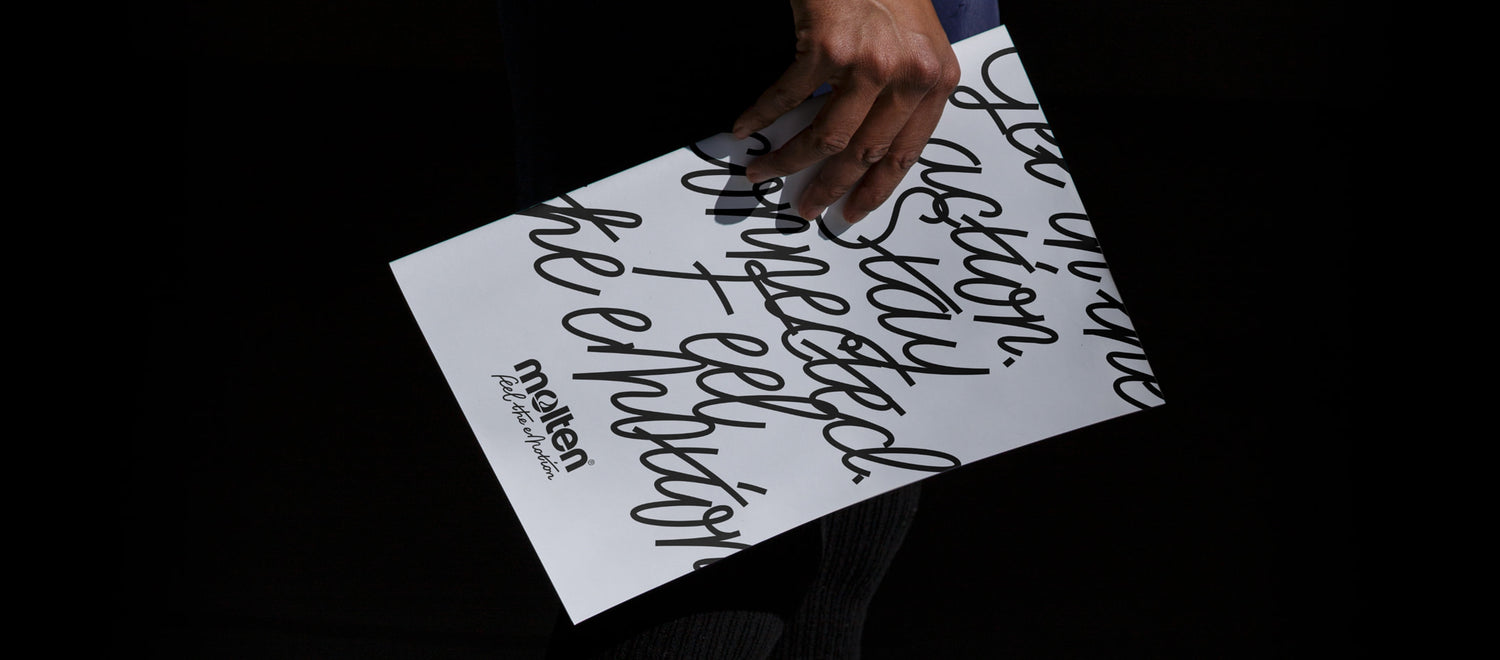 Get in the
action.
Stay
connected.
Feel
the emotion
molten®
feel the emotion